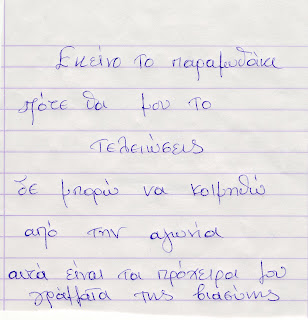 Εκείνο το παραμυθάκι
πότε θα μου το
τελειώσεις
δε μπορώ να κοιμηθώ
από την αγωνία
αυτά είναι τα πρόχειρα μου
γράμματα της βιασύνης